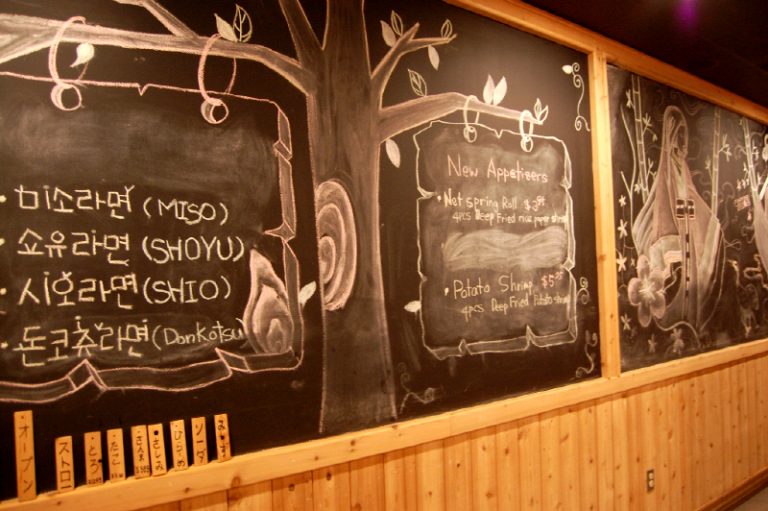 · 미소라면 (MISO)
· 쇼유라면 (SHOYU)
· 시오라면 (SHIO)
· 돈코츄라면 (Donkotsu)
New Appetizers
· Net spring Roll
4pcs Deep Fried rice paper shrimp
· Potato Shrimp $5
4pcs Deep Fried Potato shrimp
オープン
ストロー
とろ
たこ
さしみ
ソーダ